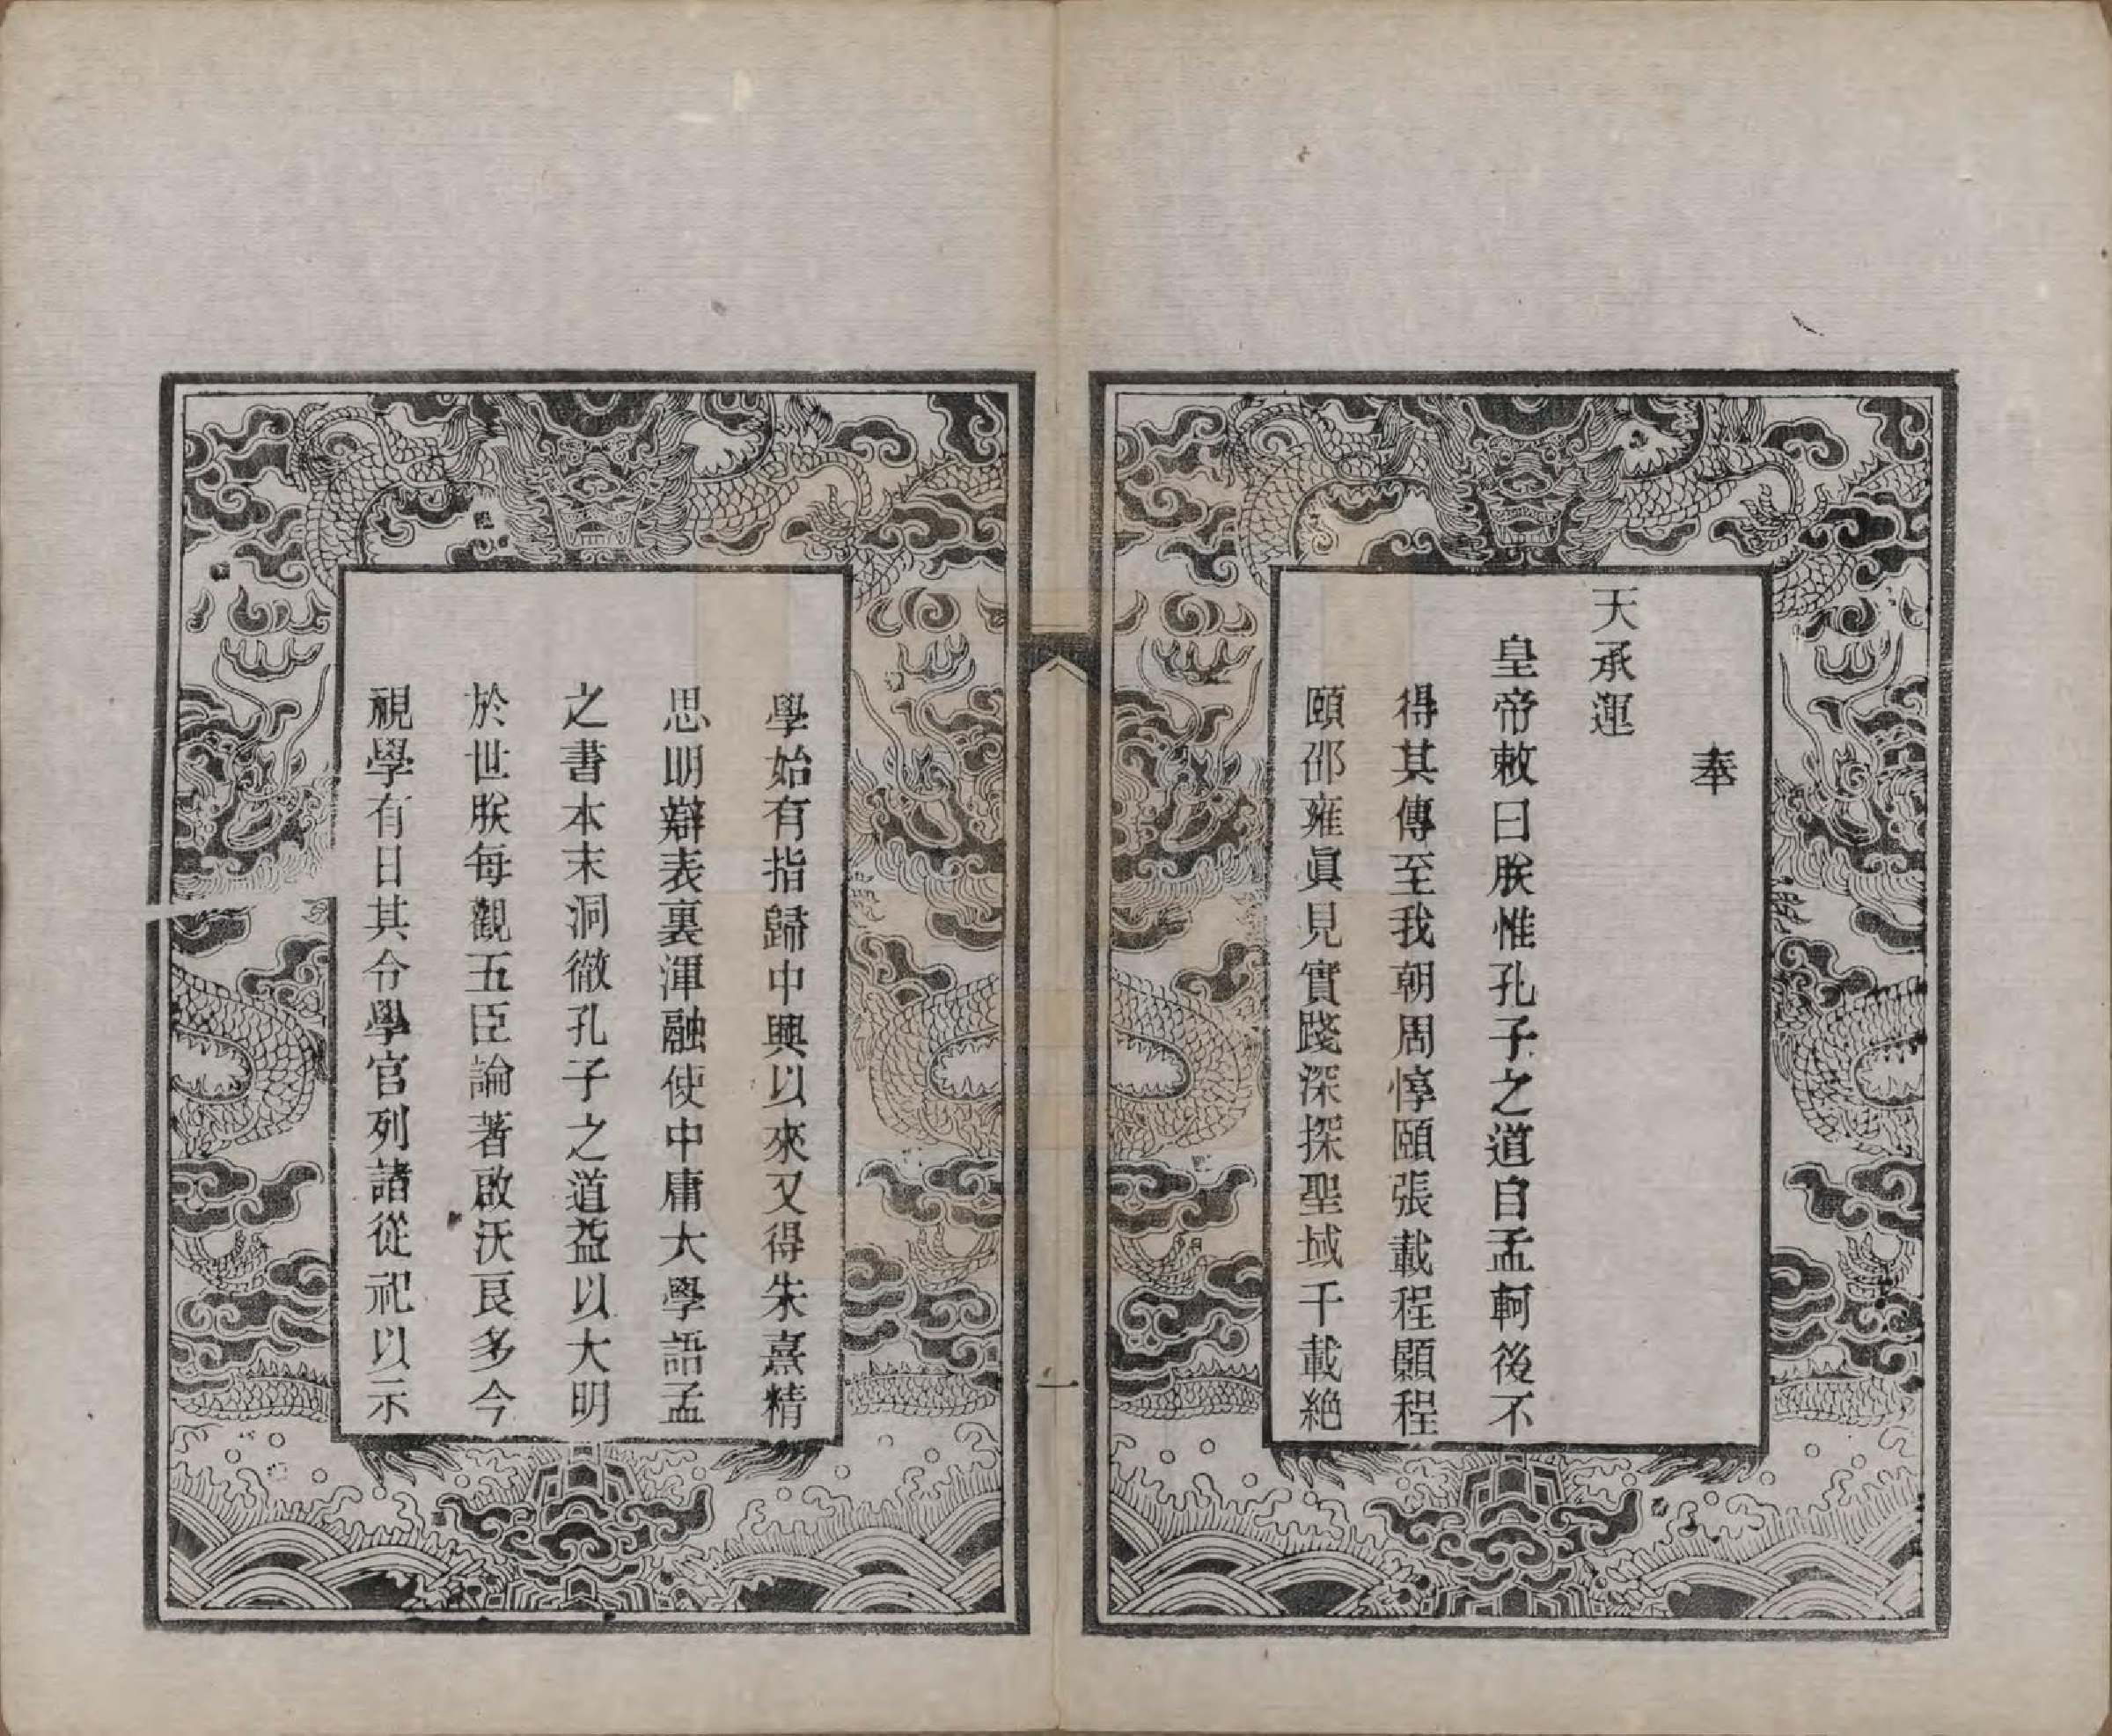 奉
天承運
皇帝敕曰朕惟孔子之道自孟軻後不
得其傳至我朝周惇頤張載程顥程
頤邵雍眞見實踐深探聖域千載絕
學始有指歸中興以來又得朱熹精
思明辯表裏渾融使中庸大學語孟
之書本末洞徹孔子之道益以大明
於世朕每觀五臣論著啟沃良多今
視學有日其令學官列諸從祀以示
一